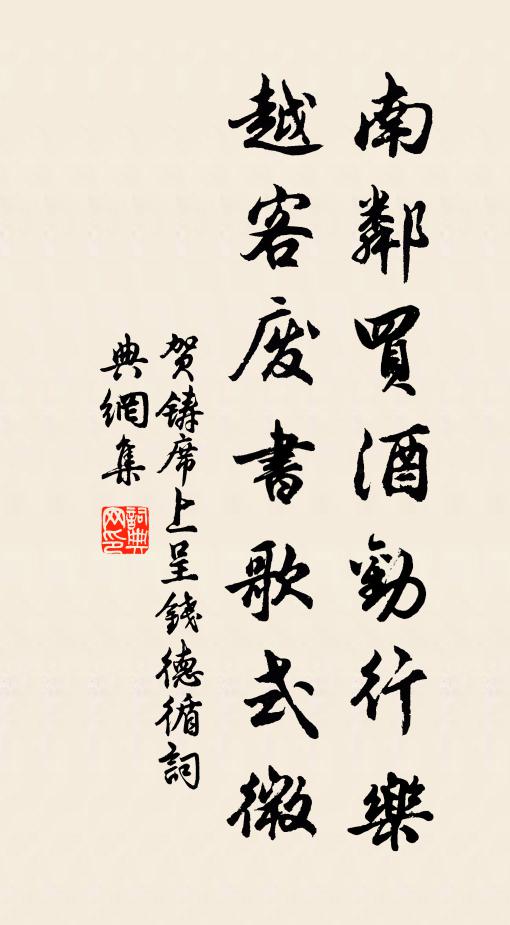 南鄰買酒勸行樂
越客废書歌式微
贺鑄席上呈錢德循詞
典網集
詞典网印